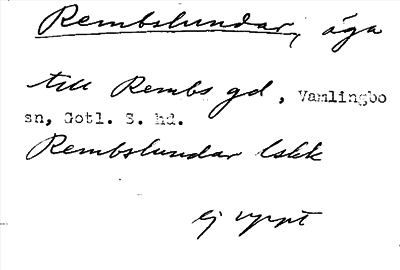 Rembslundar, äga
till Rembs gd, Vamlingbo
sn, Gotl. S. hd.
Rembslundar lskk
ej uppt